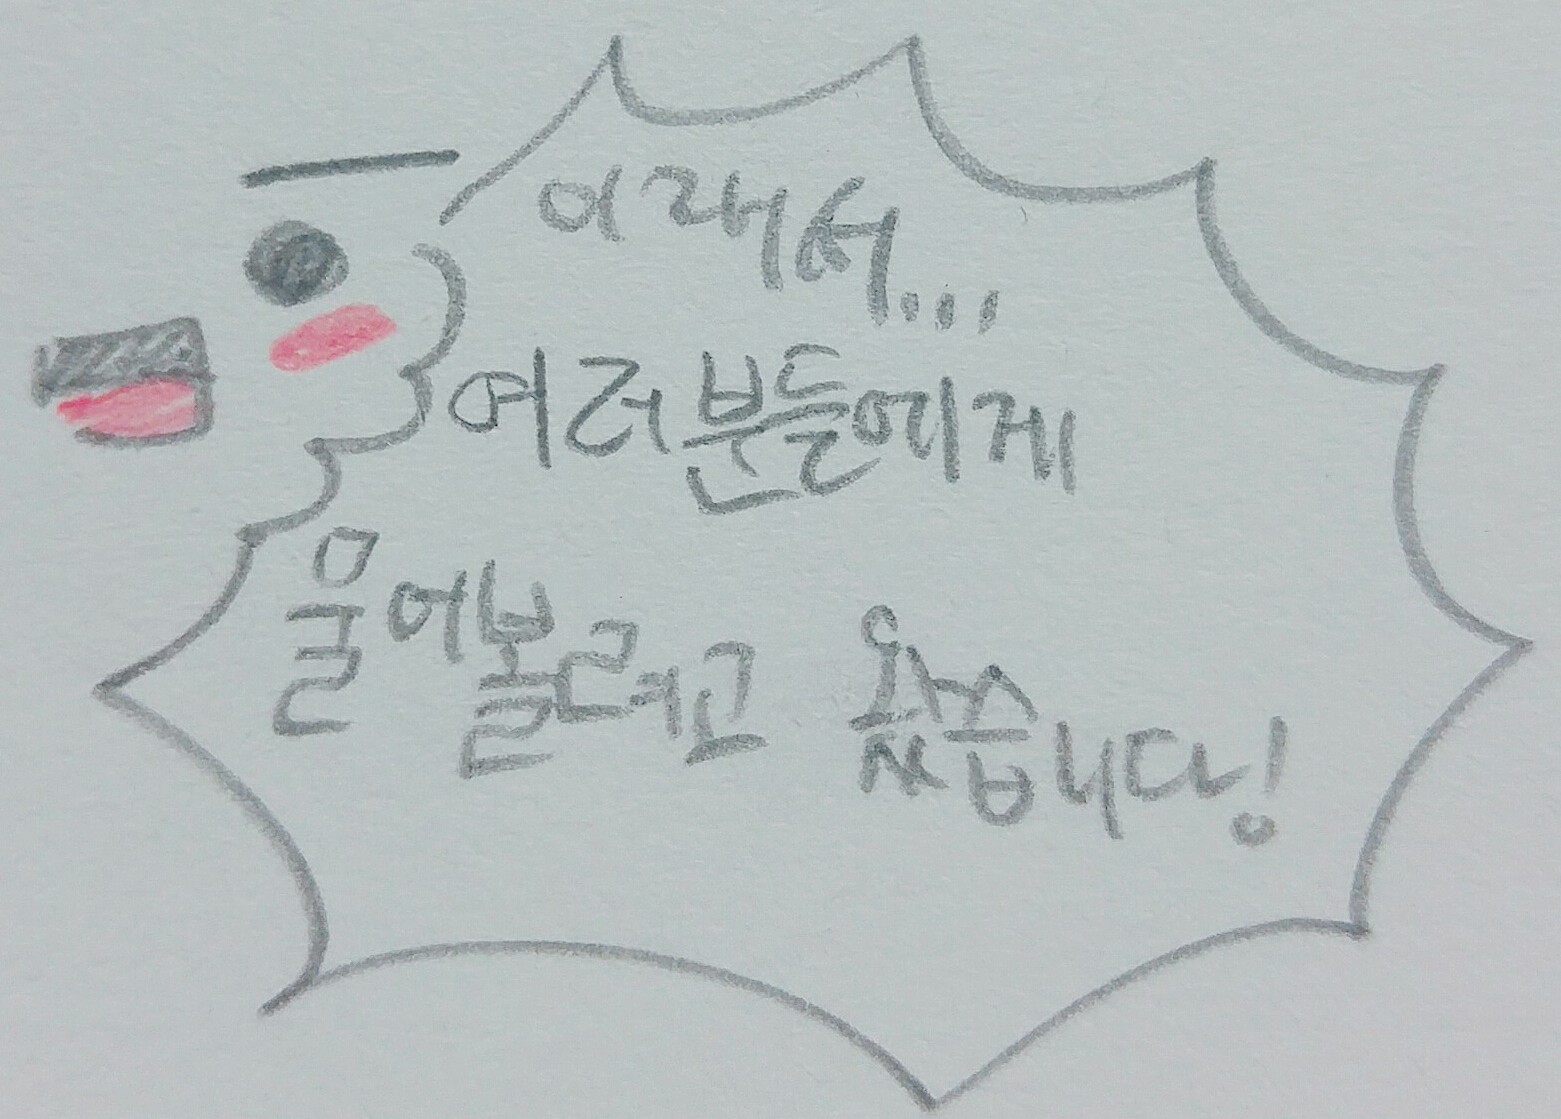 이래서...
여러분들에게
물어볼려고 왔습니다!